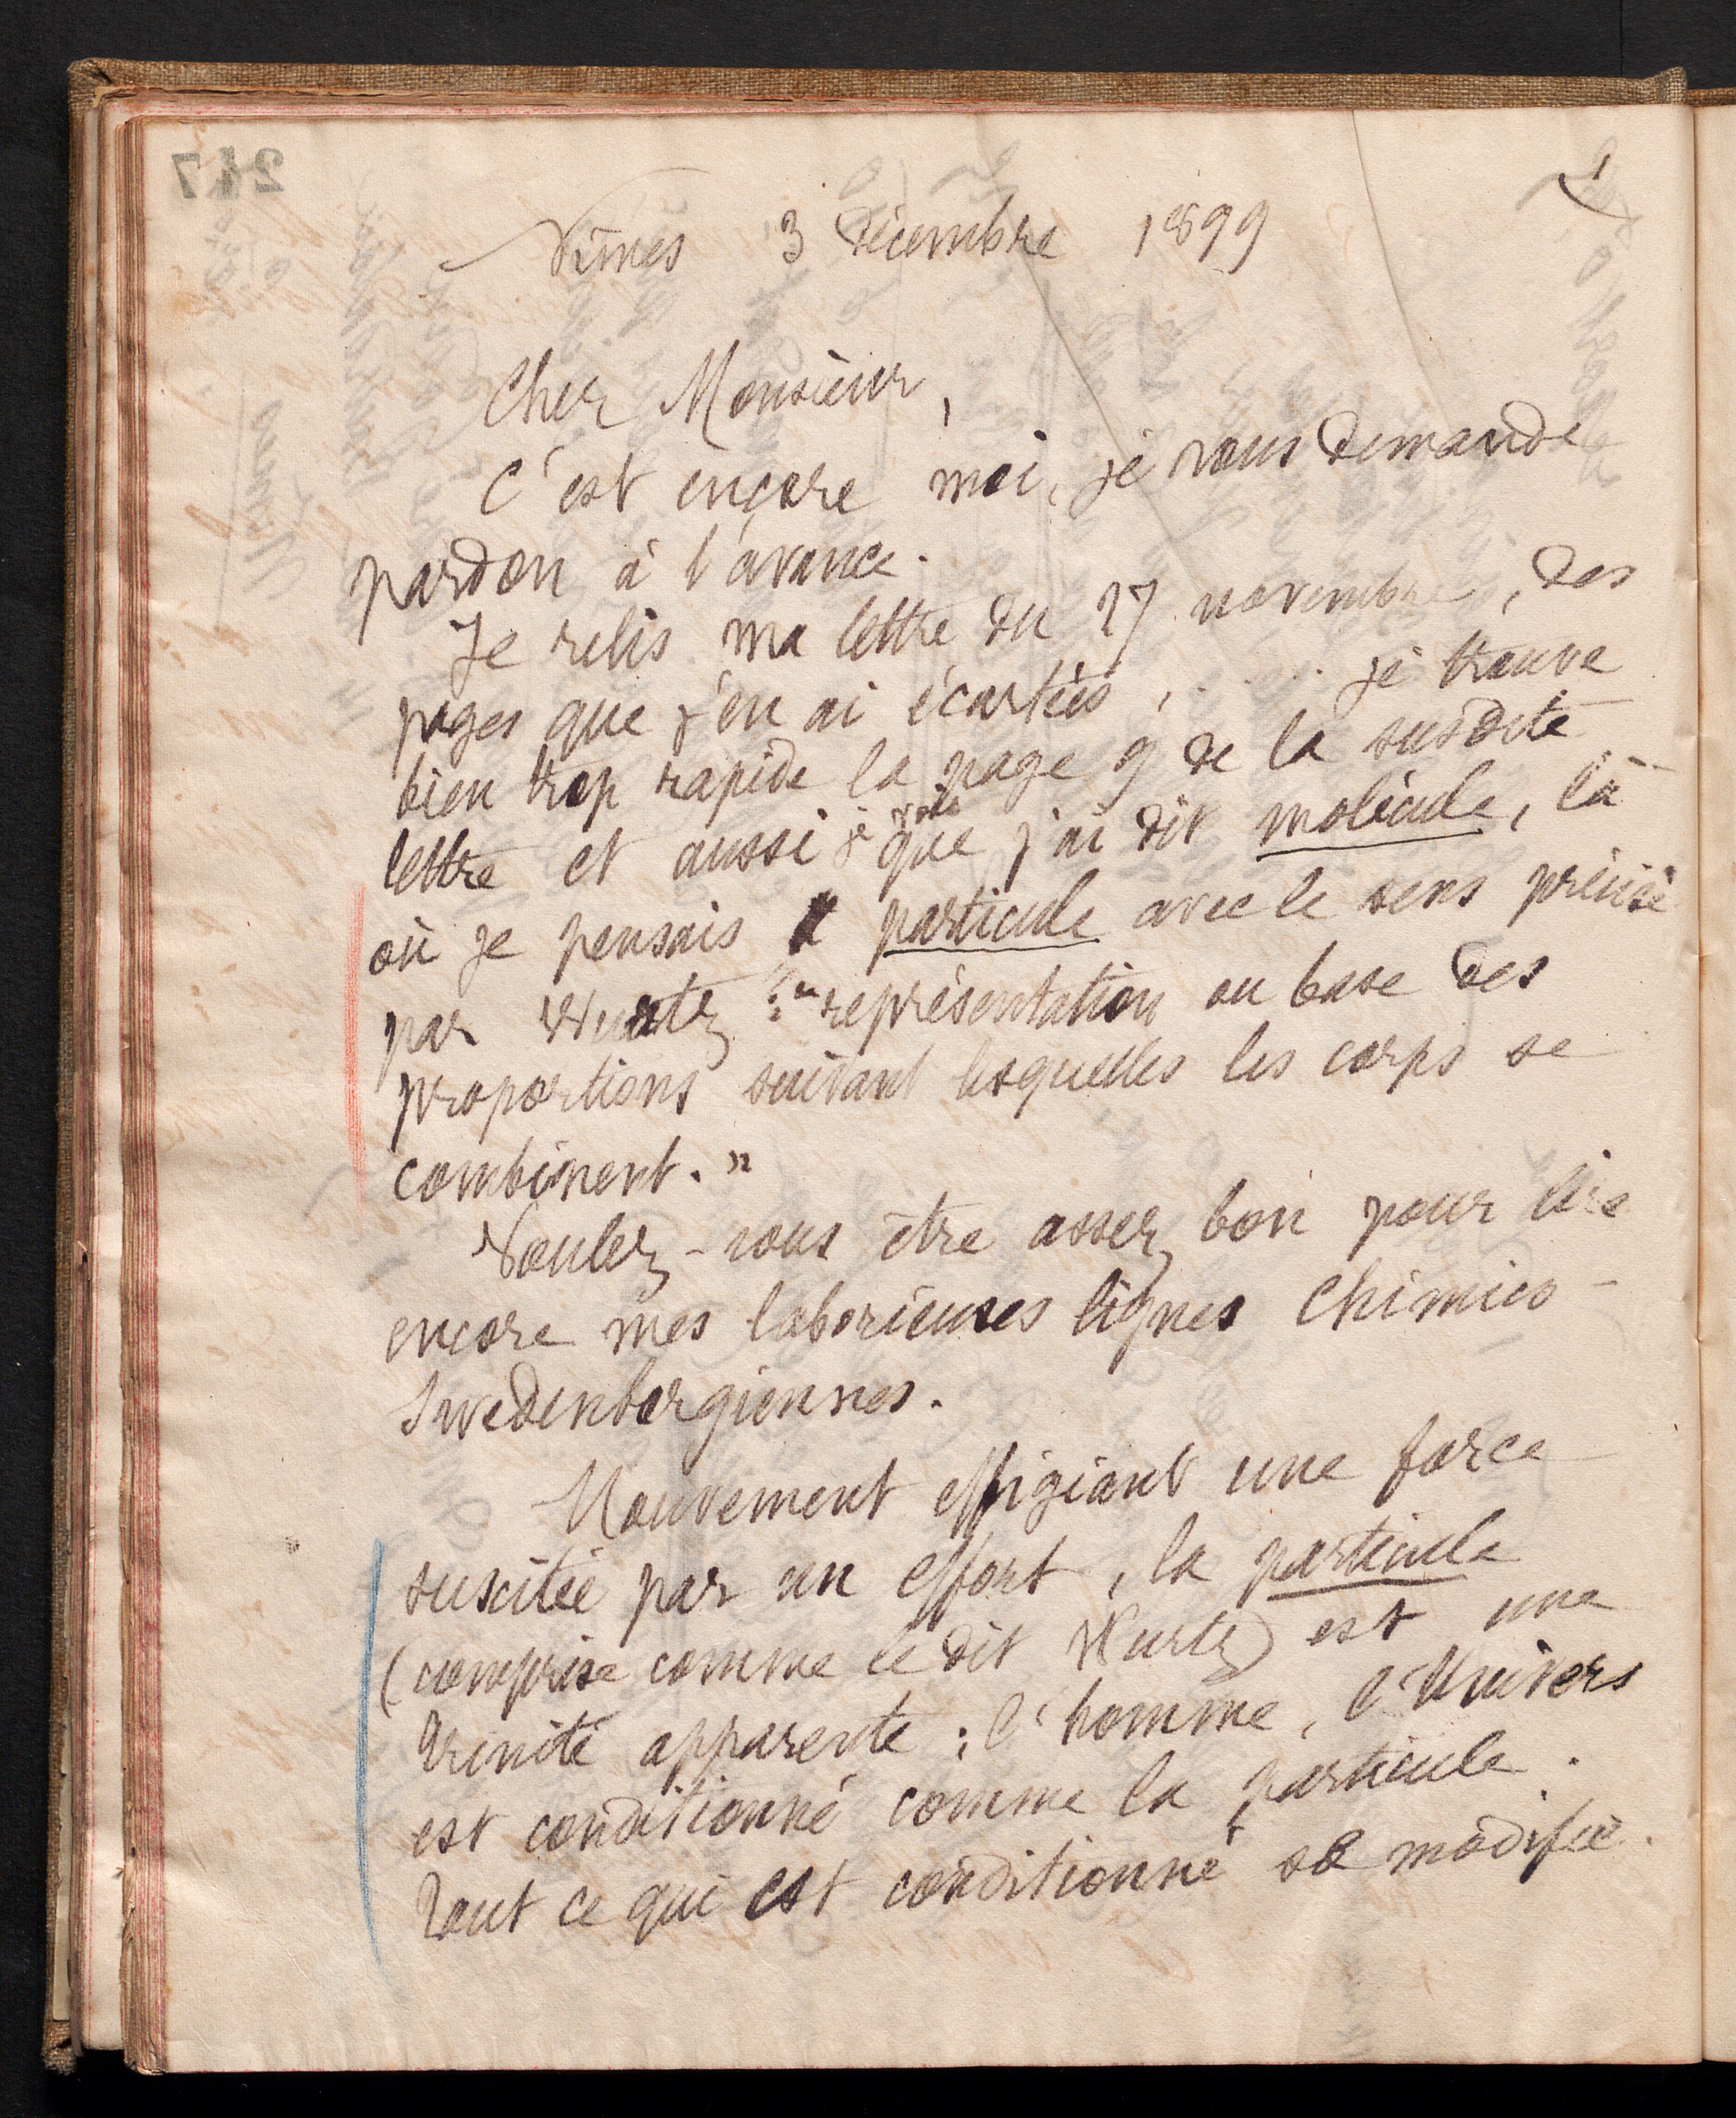 1
Nîmes 3 décembre 1899
Cher Monsieur,
C'est encore moi, je vous demande
pardon à l'avance.
Je relis ma lettre du 27 novembre, des
pages que j'en ai écartées, ..... je trouve
bien trop rapide la page 9 de la susdite
lettre et aussi je vois que j'ai dit molécule, là
où je pensais particule avec le sens précisé
par Wurtz : "représentation ou base des
proportions suivant lesquelles les corps se
combinent."
Voulez-vous être assez bon pour lire
encore mes laborieuses lignes chimico-
Swedenborgiennes.
Mouvement effigiant une force
suscitée par un effort, la particule
(comprise comme le dit Wurtz) est une
trinité apparente ; l'homme, l'Univers
est conditionné comme la particule.
Tout ce qui est conditionné se modifie.